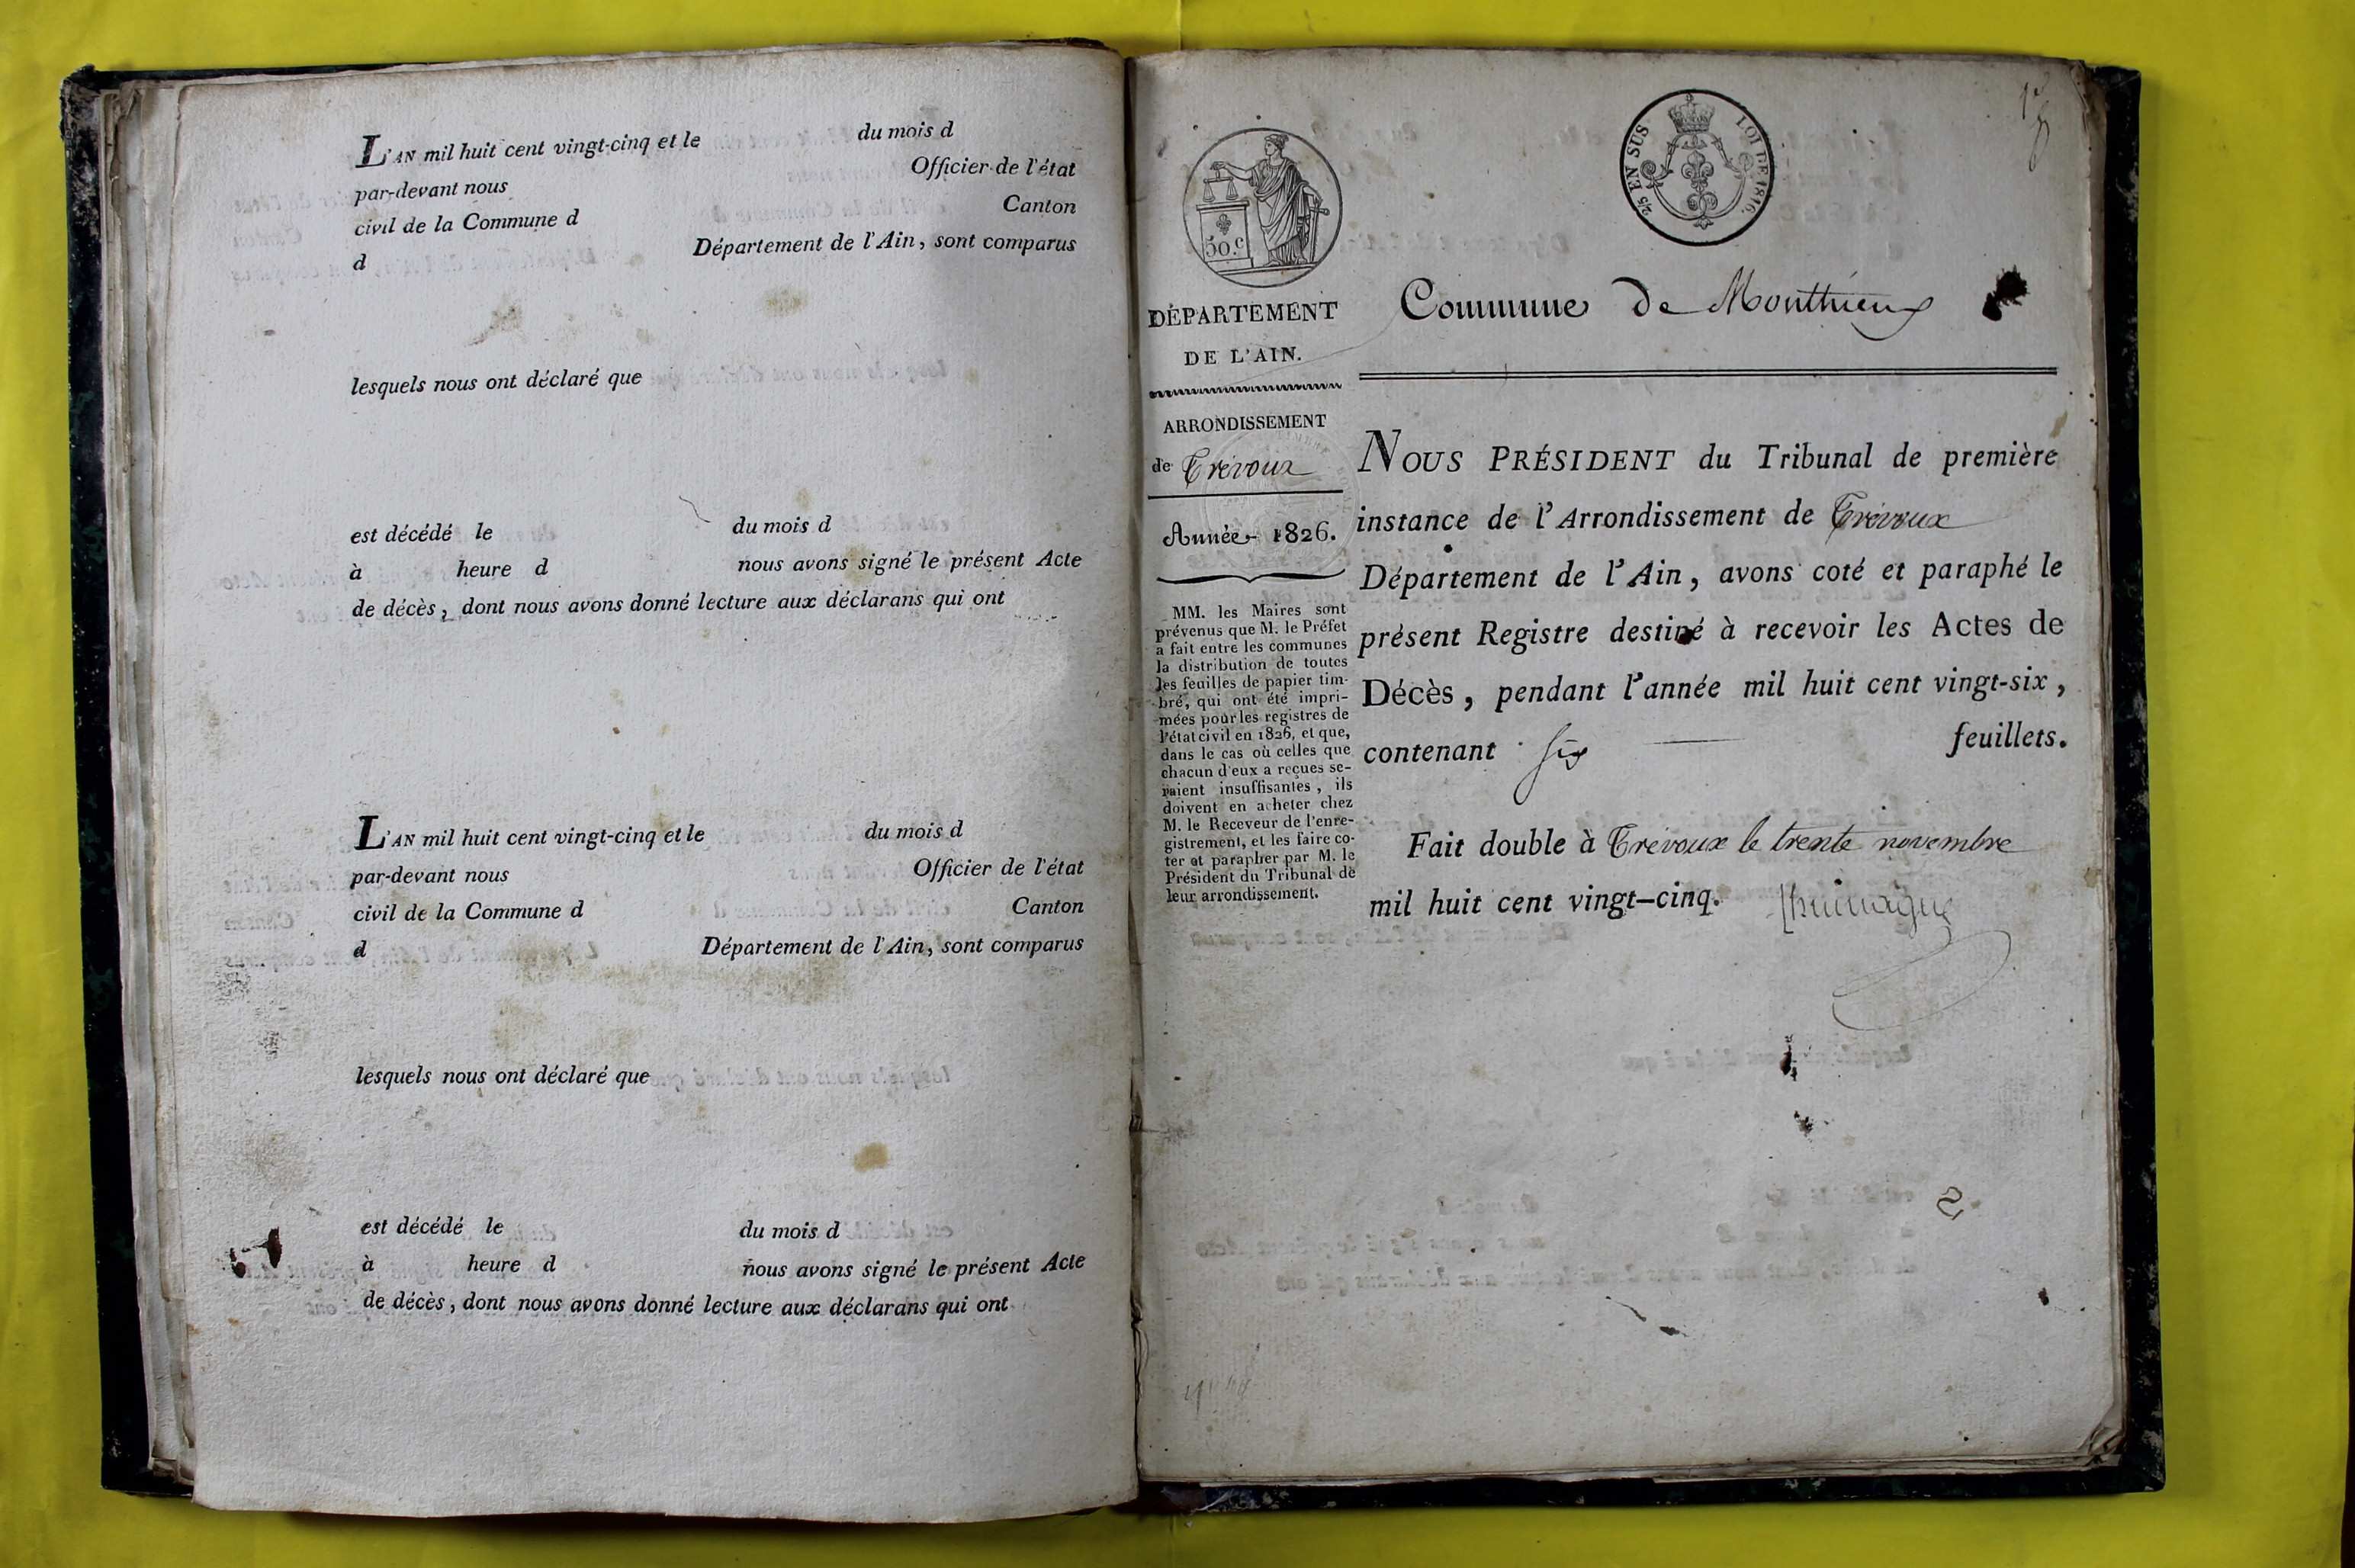 L'AN mil huit cent vingt-cinq et le du mois d
par-devant nous Officier de l'état
civil de la Commune d Canton
d Département de l'Ain, sont comparus
lesquels nous ont déclaré que
est décédé le du mois d
à heure d nous avons signé le présent Acte
de décès, dont nous avons donné lecture aux déclarans qui ont
L'AN mil huit cent vingt-cinq et le du mois d
par-devant nous Officier de l'état
civil de la Commune d Canton
d Département de l'Ain, sont comparus
lesquels nous ont déclaré que
est décédé le du mois d
à heure d nous avons signé le présent Acte
de décès, dont nous avons donné lecture aux déclarans qui ont
50.c
2/5 EN SUS LOI DE 1816.
DÉPARTEMENT
DE L'AIN.
ARRONDISSEMENT
de Trévoux
Année 1826.
MM. les Maires sont
prévenus que M. le Préfet
a fait entre les communes
la distribution de toutes
les feuilles de papier tim-
bré, qui ont été impri-
mées pour les registres de
l'état civil en 1826, et que,
dans le cas où celles que
chacun d'eux a reçues se-
raient insuffisantes, ils
doivent en acheter chez
M. le Receveur de l'enre-
gistrement, et les faire co-
ter et parapher par M. le
Président du Tribunal de
leur arrondissement.
Commune de Monthieux
NOUS PRÉSIDENT du Tribunal de première
instance de l'Arrondissement de Trévoux
Département de l'Ain, avons coté et paraphé le
présent Registre destiné à recevoir les Actes de
Décès, pendant l'année mil huit cent vingt-six,
contenant six feuillets.
Fait double à Trévoux le trente novembre
mil huit cent vingt-cinq.